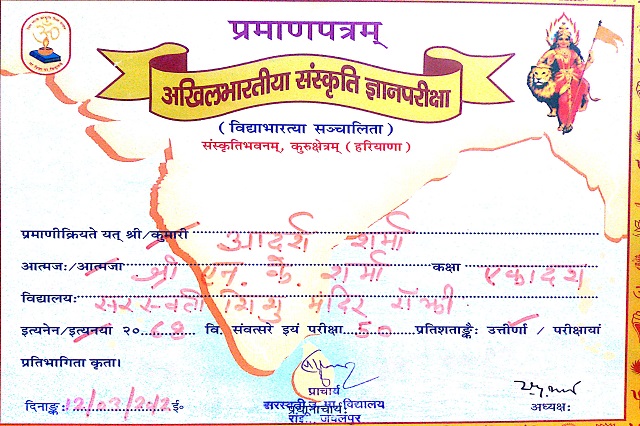 प्रमाणपत्रम्
अखिलभारतीया संस्कृति ज्ञानपरीक्षा
(विद्याभारत्या सञ्चालिता)
संस्कृतिभवनम्, कुरुक्षेत्रम् (हरियाणा)
प्रमाणीक्रियते यत् श्री/कुमारी आदर्श शर्मा
आत्मजः/आत्मजा श्री एन. के. शर्मा कक्षा एकादश
विद्यालयः सरस्वती शिशु मंदिर राँझी
इत्यनेन/इत्यनया २०६८ वि. संवत्सरे इयं परीक्षा 50 प्रतिशताङ्कैः उत्तीर्णा / परीक्षायां
प्रतिभागिता कृता।
प्राचार्य
दिनाङ्कः 12/03/2012 ई०
प्रधानाचार्यः
अध्यक्षः